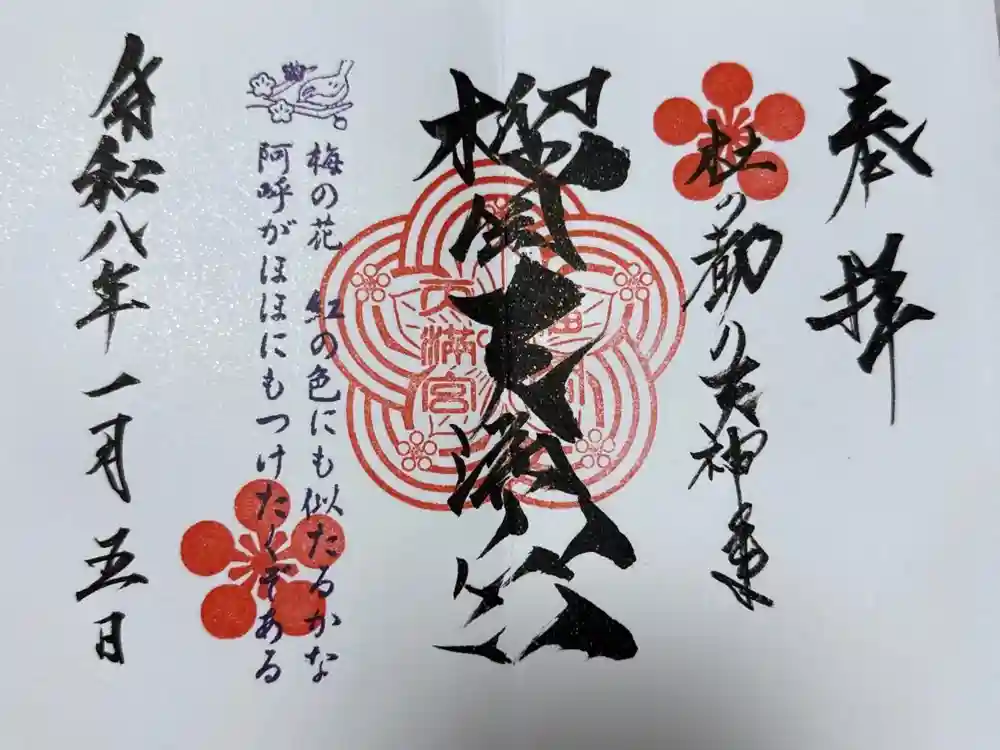 奉拝
杜の勸り天神車
榴岡天満宮
天満宮
梅の花 紅の色にも似たるかな
阿呼がほほにもつけたくぞある
令和八年 一月 五日